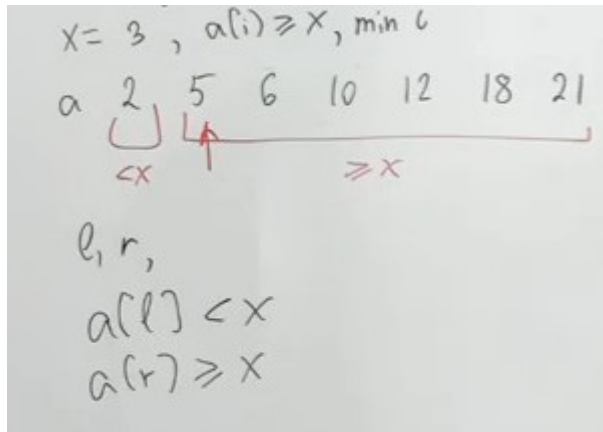 x = 3, a[i] ⩾ x, min i
a 2 5 6 10 12 18 21
<x ⩾x
l, r,
a[l] < x
a[r] ⩾ x